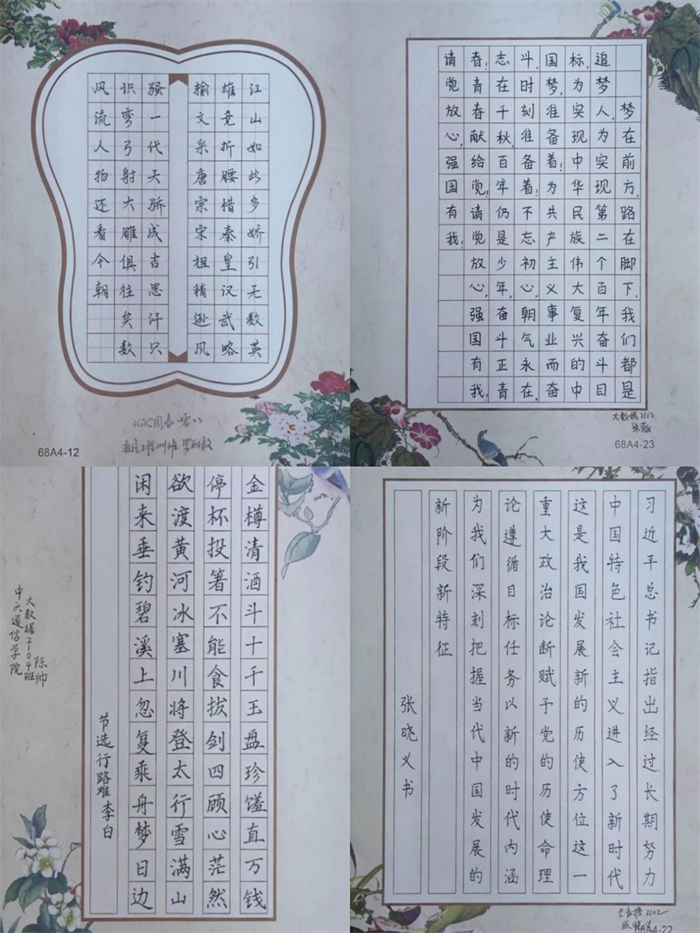 江山如此多娇引无数英
雄竞折腰惜秦皇汉武略
输文采唐宗宋祖稍逊风
骚一代天骄成吉思汗只
识弯弓射大雕俱往矣数
风流人物还看今朝
《沁园春·雪》
68A4-12
梦在前方,路在脚下,我们都是
追梦人,为实现第二个百年奋斗目
标,为实现中华民族伟大复兴的中
国梦,准备着!为共产主义事业而奋
斗,时刻准备着!不忘初心,朝气永在,
志在千秋,百年仍是少年,奋斗正青
春!青春献给党!请党放心,强国有我!
请党放心,强国有我!
大数据2102
68A4-23
金樽清酒斗十千玉盘珍馐直万钱
停杯投箸不能食拔剑四顾心茫然
欲渡黄河冰塞川将登太行雪满山
闲来垂钓碧溪上忽复乘舟梦日边
节选行路难李白
陈帅
大数据2104班
中兴通信学院
习近平总书记指出经过长期努力
中国特色社会主义进入了新时代
这是我国发展新的历使方位这一
重大政治论断赋予党的历使命理
论遵循目标任务以新的时代内涵
为我们深刻把握当代中国发展的
新阶段新特征
张晓义书
大数据2102
68A4-22